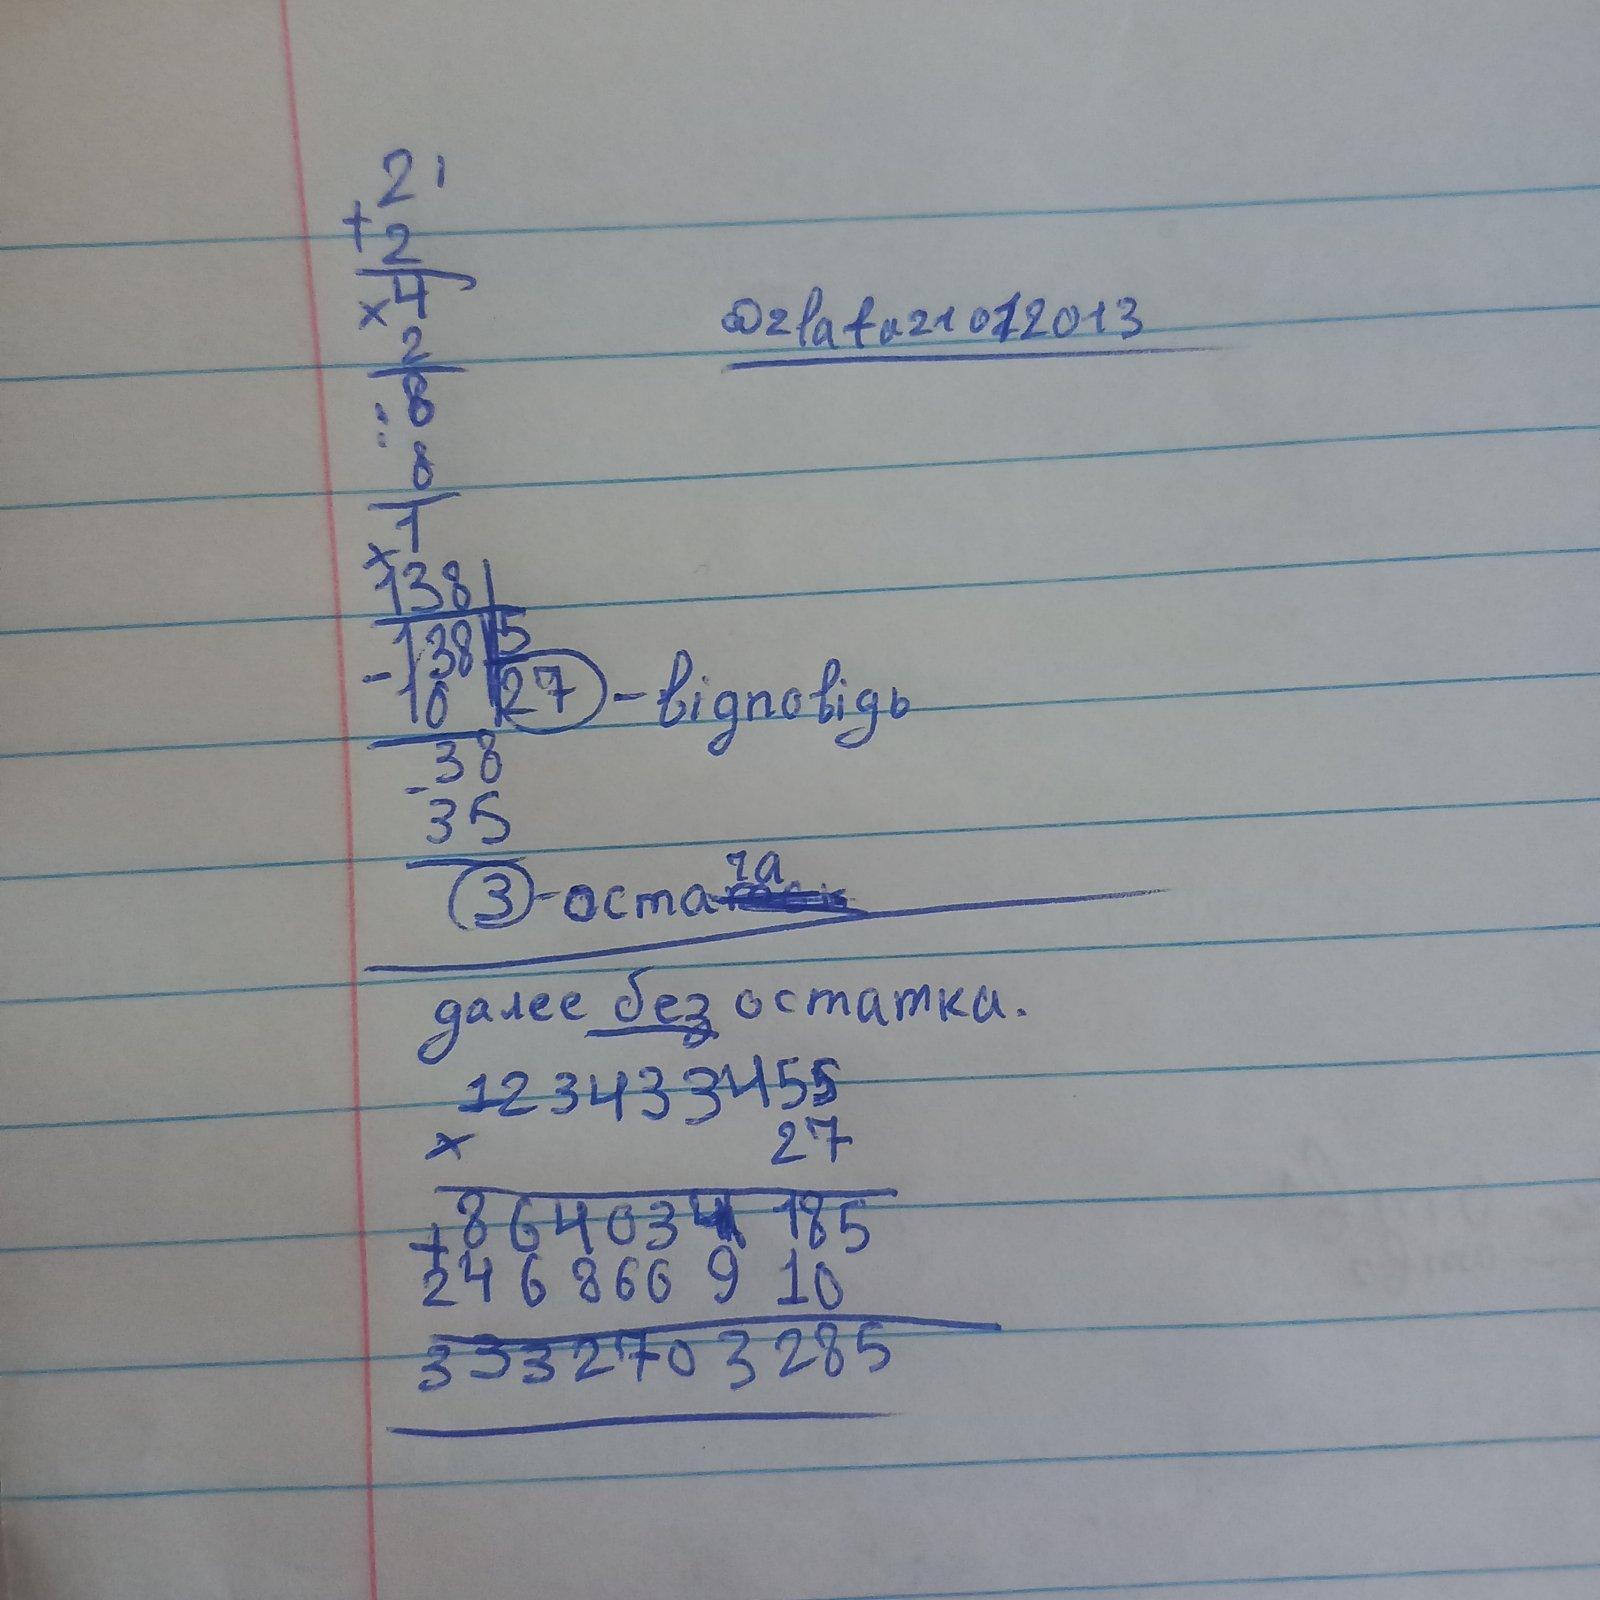 2 1
+ 2
@zlata21012013
× 4
2
: 8
8
1
× 138
- 138 | 5
10 | 27 - відповідь
- 38
35
3 - оста ча
далее без остатка.
123433455
× 27
864034185
+ 246866910
3332703285